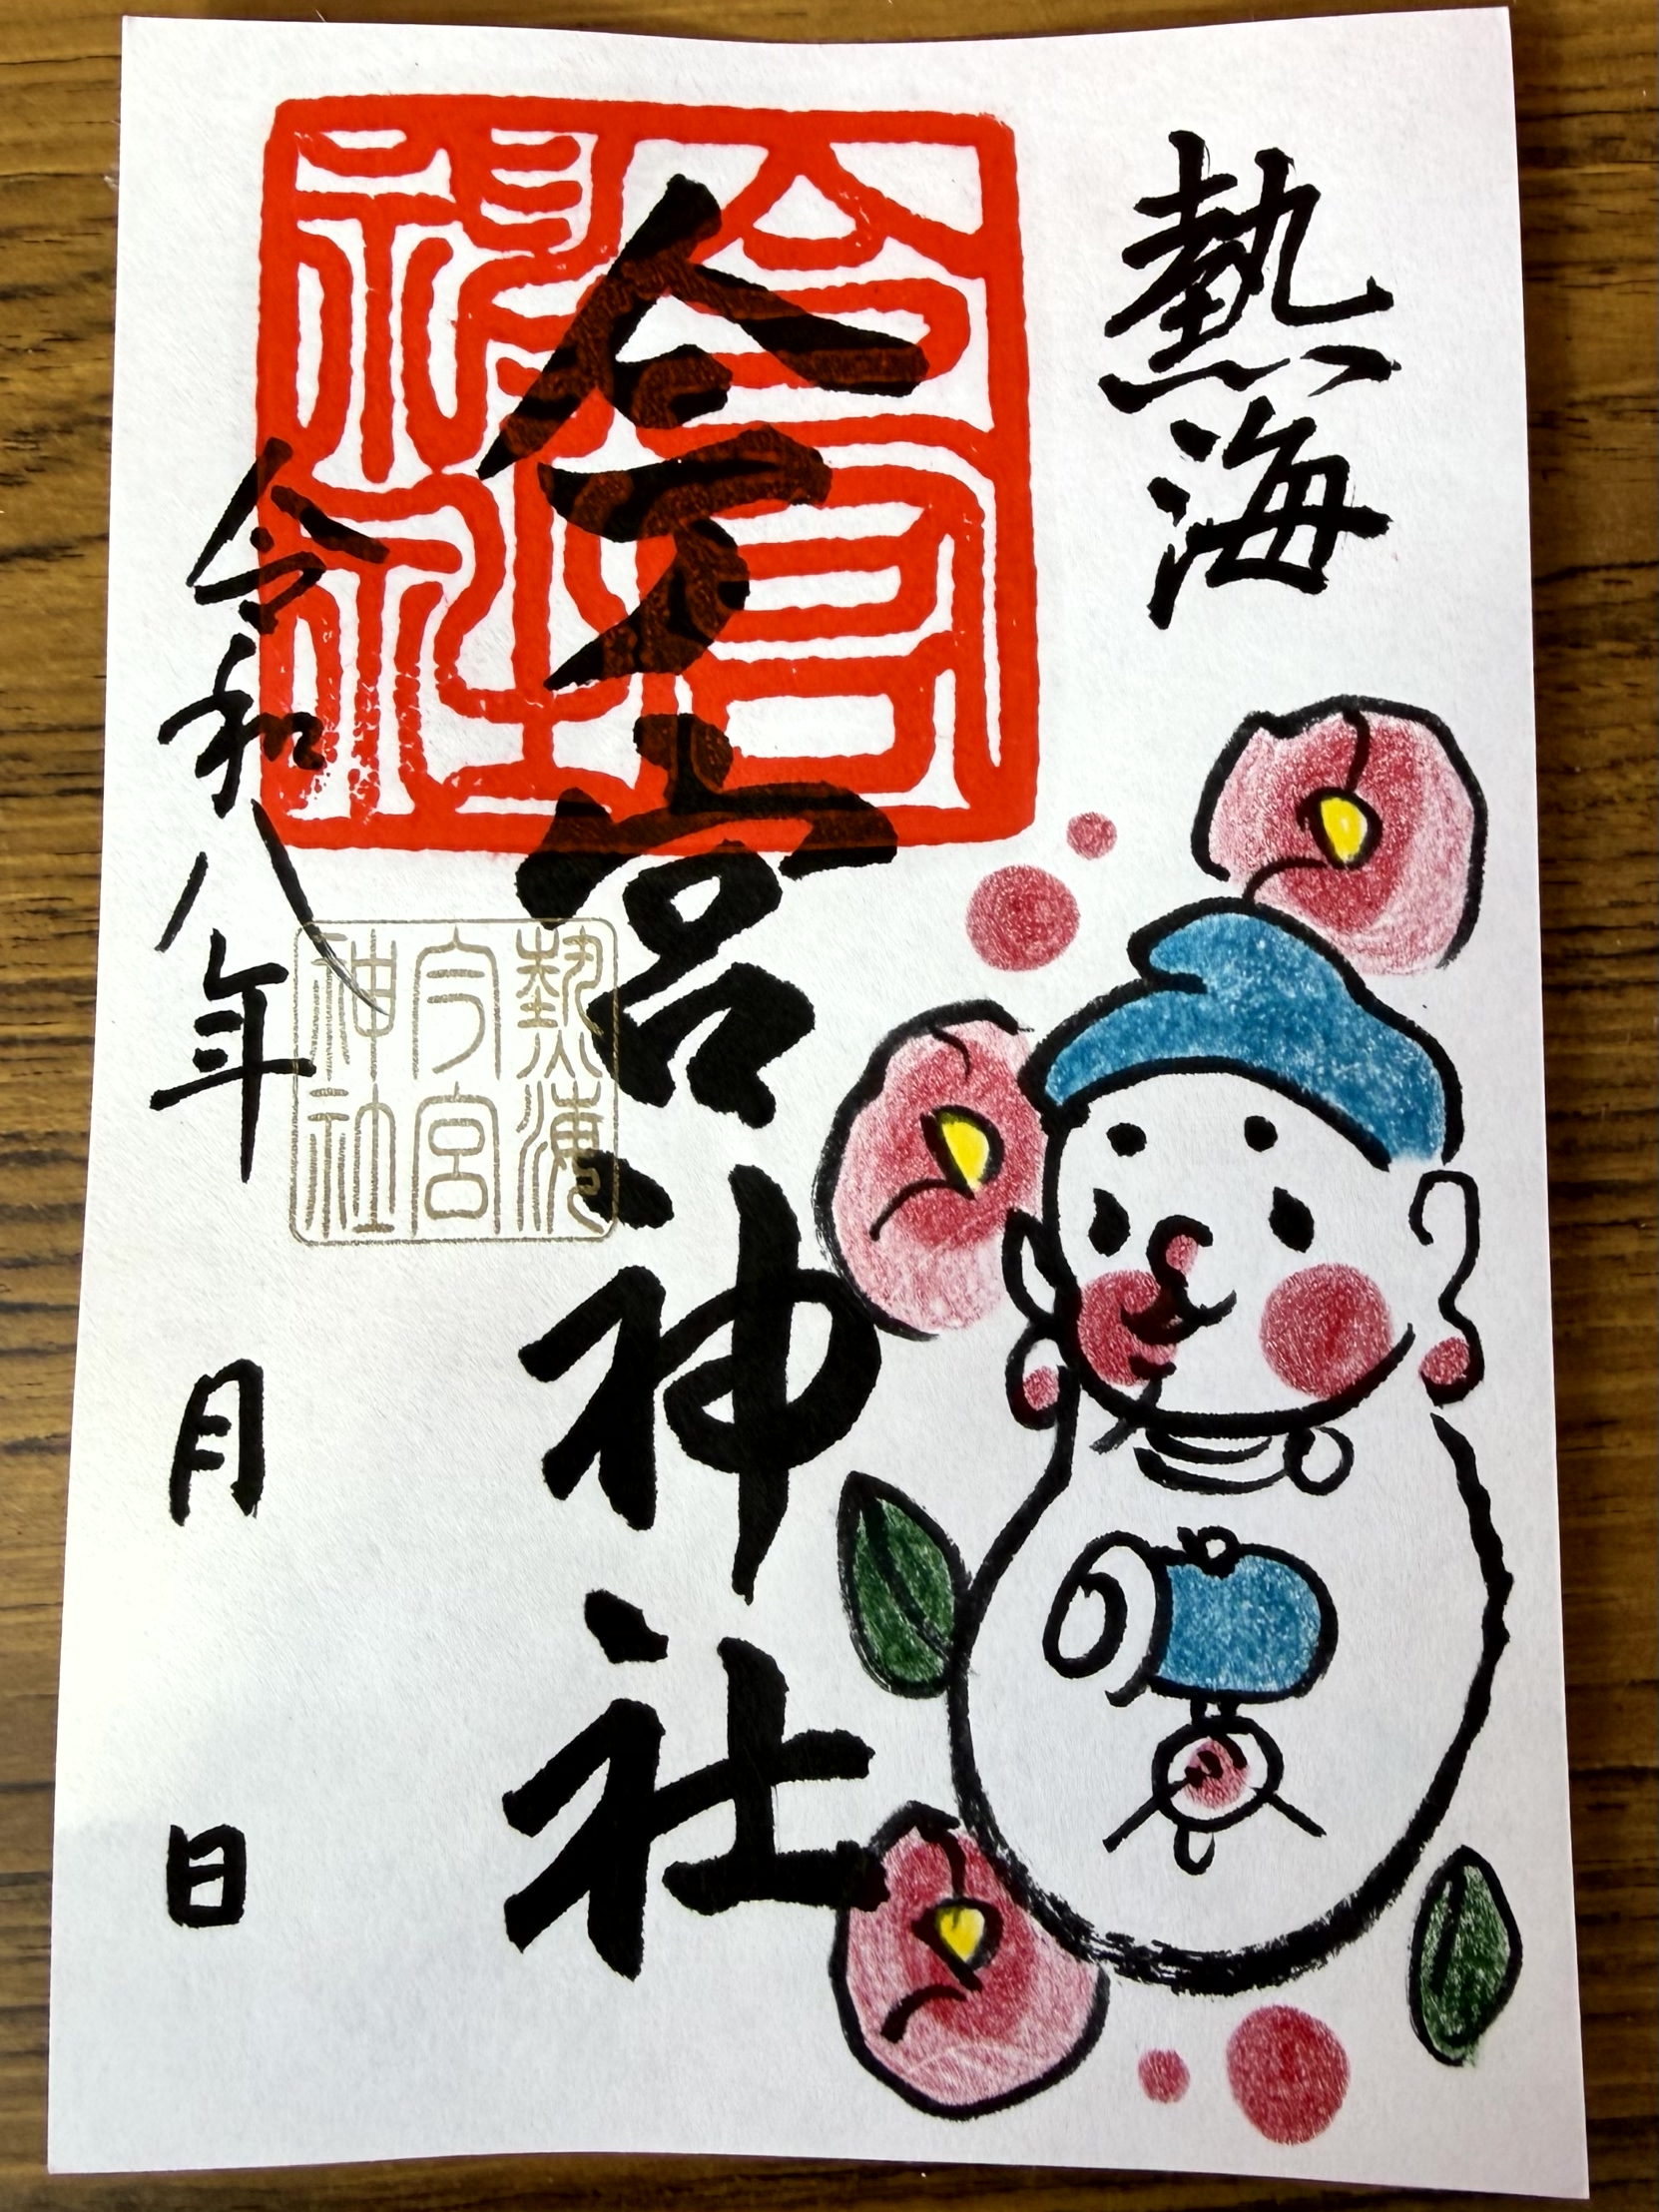 熱海
今宮神社
令和八年 月 日
今宮神社
熱海今宮神社